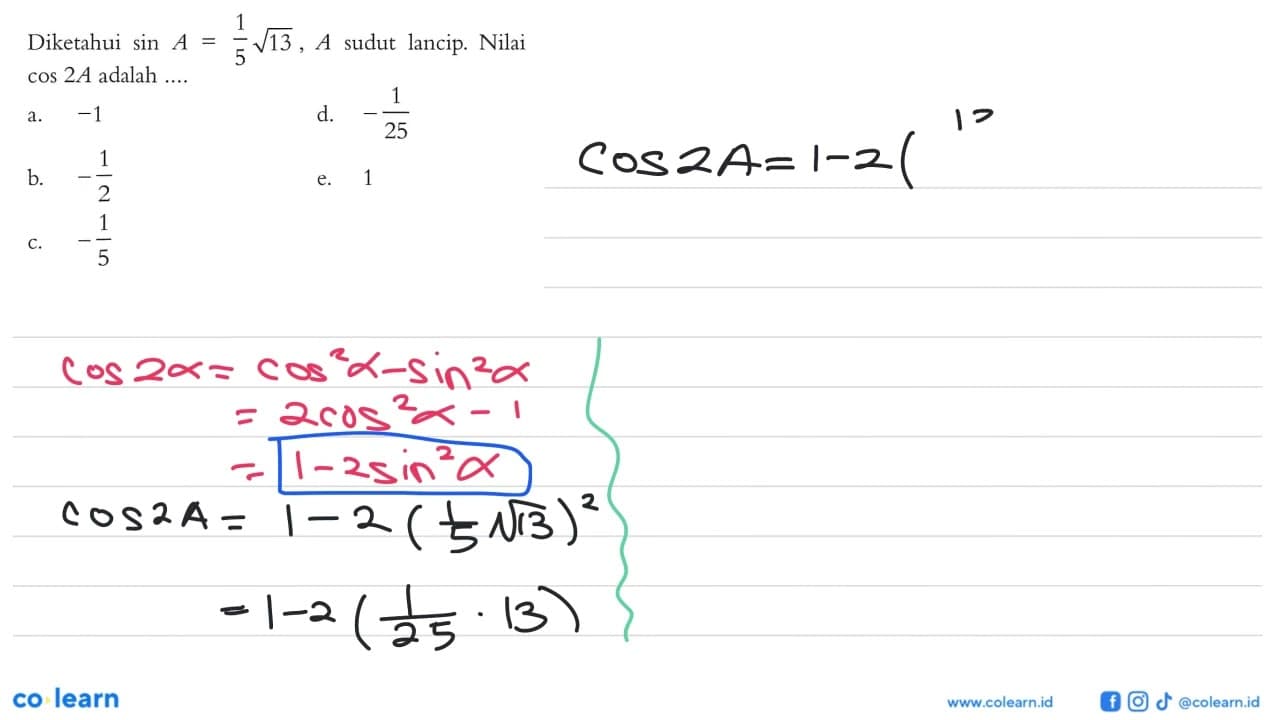 Diketahui sin A = 1/5 √13 , A sudut lancip. Nilai
cos 2A adalah ....
a. −1
b. −1/2
c. −1/5
d. −1/25
e. 1
cos2A=1-2(
cos 2α = cos²α-sin²α
= 2cos²α - 1
= 1-2sin²α
cos2A = 1-2(1/5 √13)²
= 1-2(1/25 · 13)
co learn
www.colearn.id
@colearn.id